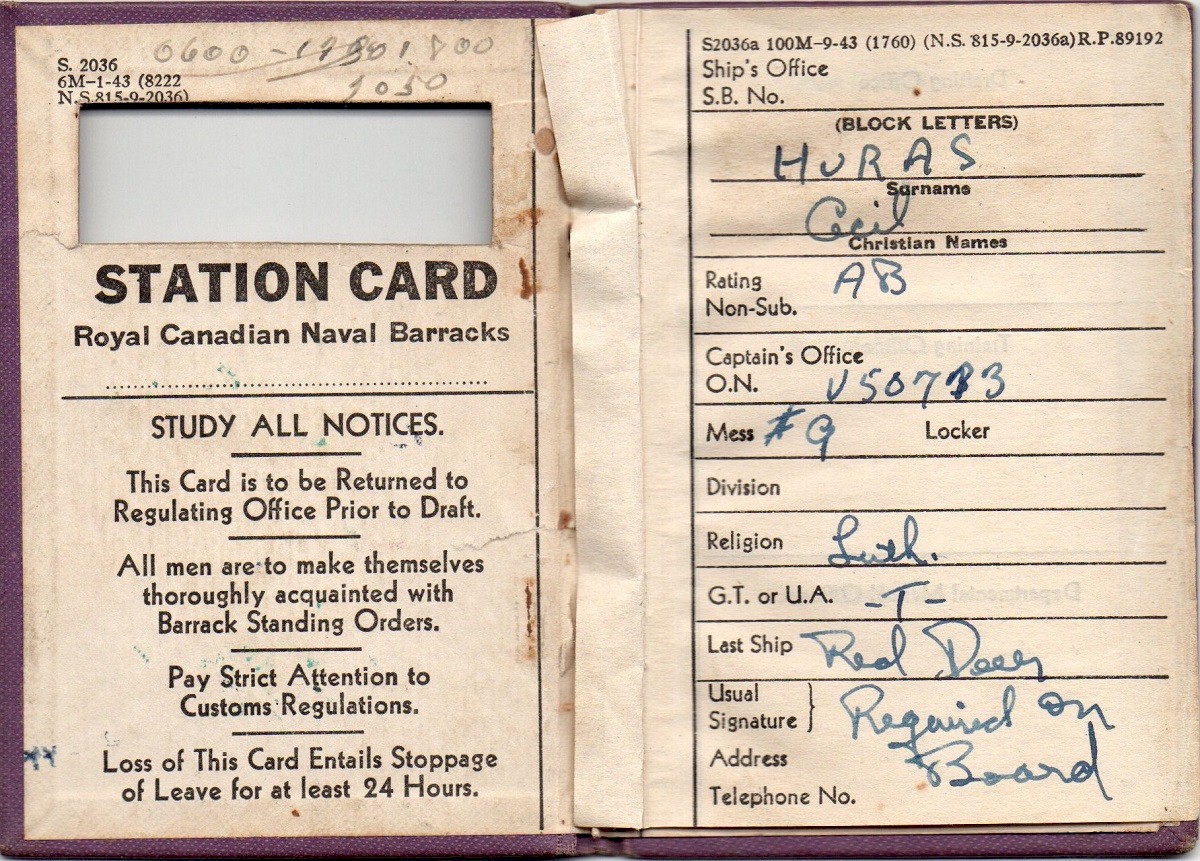 0600 - 1800
1050
S. 2036
6M-1-43 (8222
N.S.815-9-2036)
STATION CARD
Royal Canadian Naval Barracks
STUDY ALL NOTICES.
This Card is to be Returned to
Regulating Office Prior to Draft.
All men are to make themselves
thoroughly acquainted with
Barrack Standing Orders.
Pay Strict Attention to
Customs Regulations.
Loss of This Card Entails Stoppage
of Leave for at least 24 Hours.
S2036a 100M-9-43 (1760) (N.S. 815-9-2036a) R.P.89192
Ship's Office
S.B. No.
(BLOCK LETTERS)
HURAS
Surname
Cecil
Christian Names
Rating AB
Non-Sub.
Captain's Office
O.N. V50783
Mess #9 Locker
Division
Religion Luth.
G.T. or U.A. -T-
Last Ship Red Deer
Usual
Signature } Required on
Address Board
Telephone No.